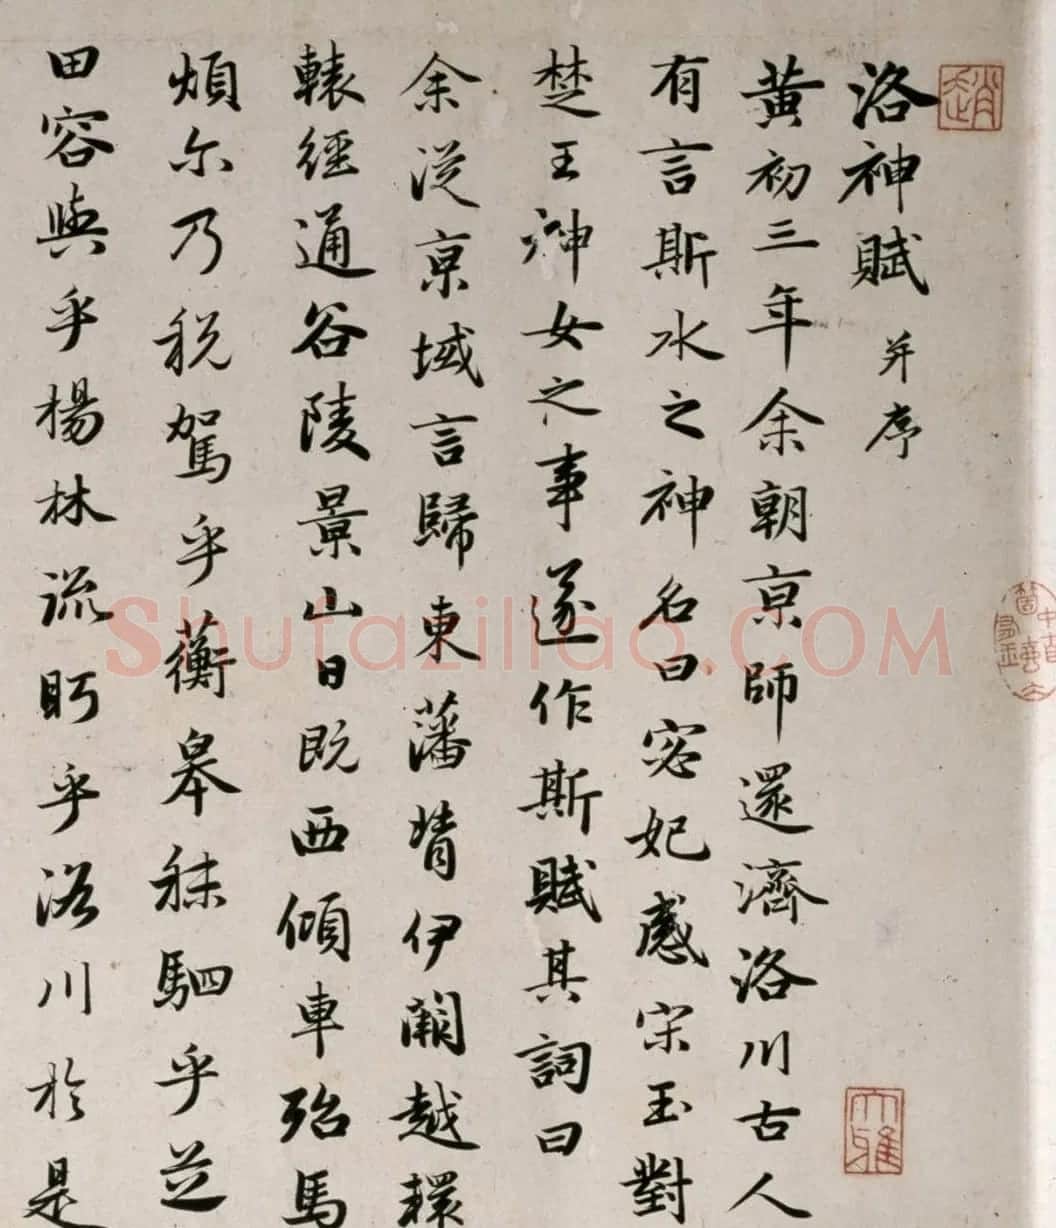 洛神賦 并序
黄初三年余朝京師還濟洛川古人
有言斯水之神名曰宓妃感宋玉對
楚王神女之事遂作斯賦其詞曰
余從京域言歸東藩背伊闕越轘
轅經通谷陵景山日既西傾車殆馬
煩尔乃税駕乎蘅皋秣駟乎芝
田容與乎楊林流眄乎洛川於是
趙
大雅
Shufaziliao.COM